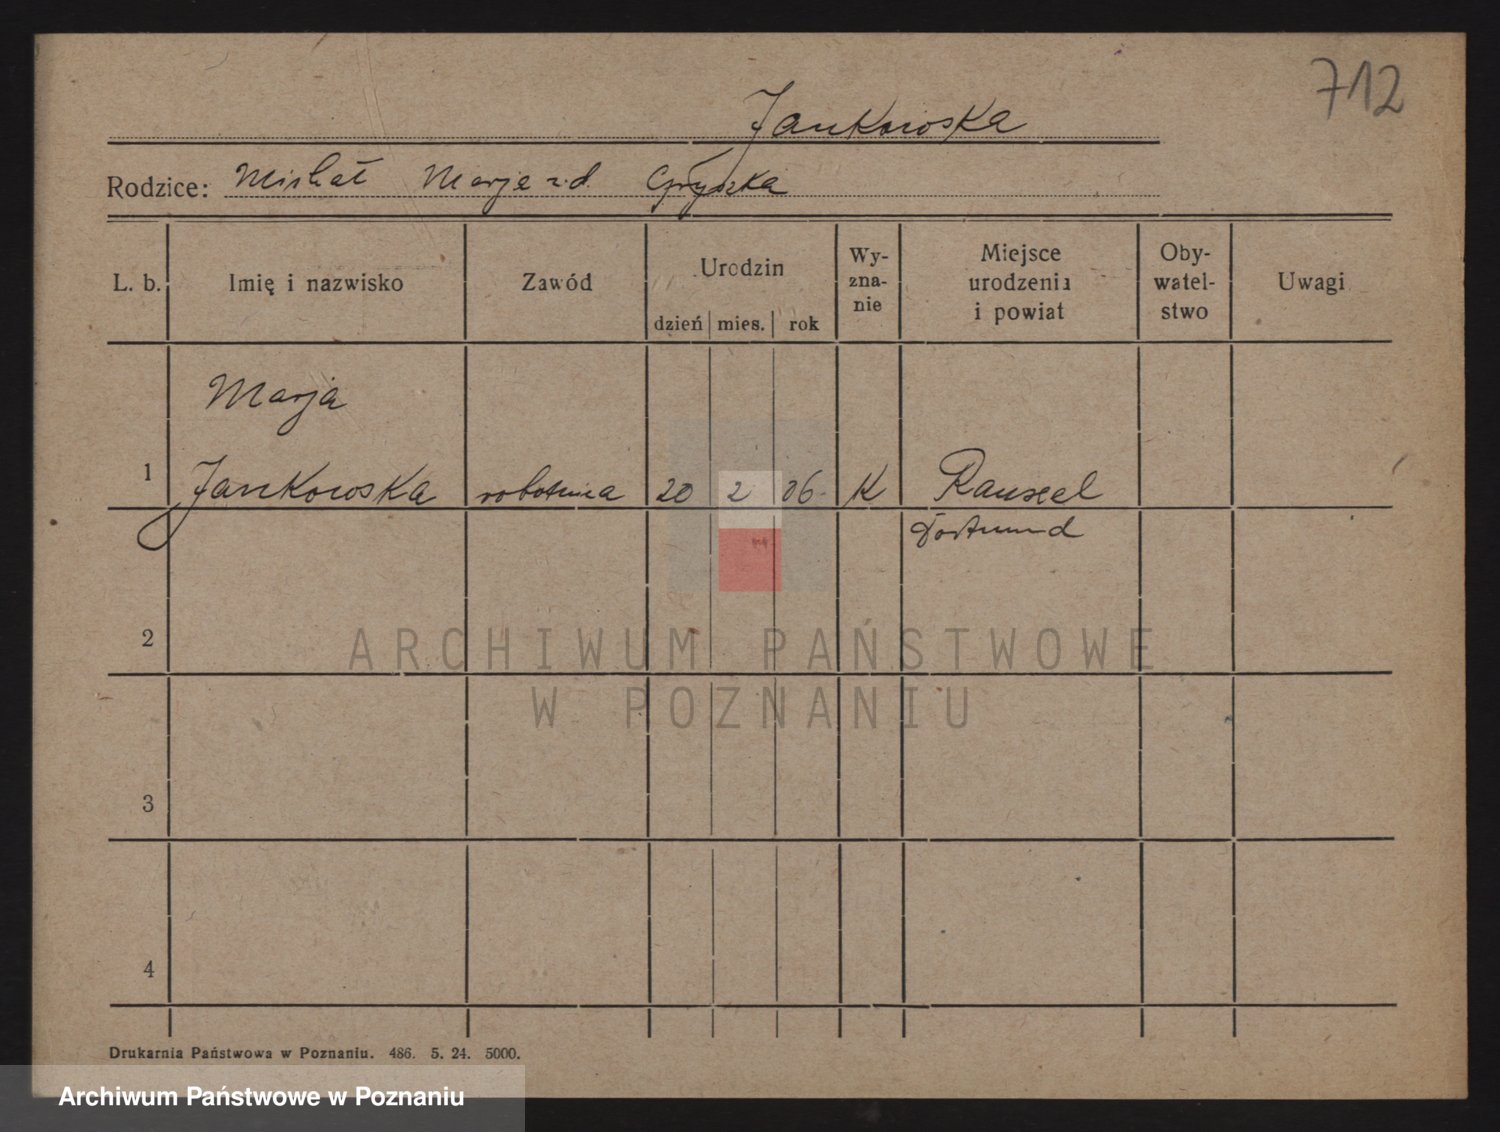 712
Jankowska
Rodzice: Michał Marja z d. Gryszka
L. b. Imię i nazwisko Zawód Urodzin dzień mies. rok Wy-zna-nie Miejsce urodzenia i powiat Oby-watel-stwo Uwagi
Marja
1 Jankowska robotnica 20 2 06 K Rauxel
Dortmund
2
ARCHIWUM PAŃSTWOWE
W POZNANIU
3
4
Drukarnia Państwowa w Poznaniu. 486. 5. 24. 5000.
Archiwum Państwowe w Poznaniu